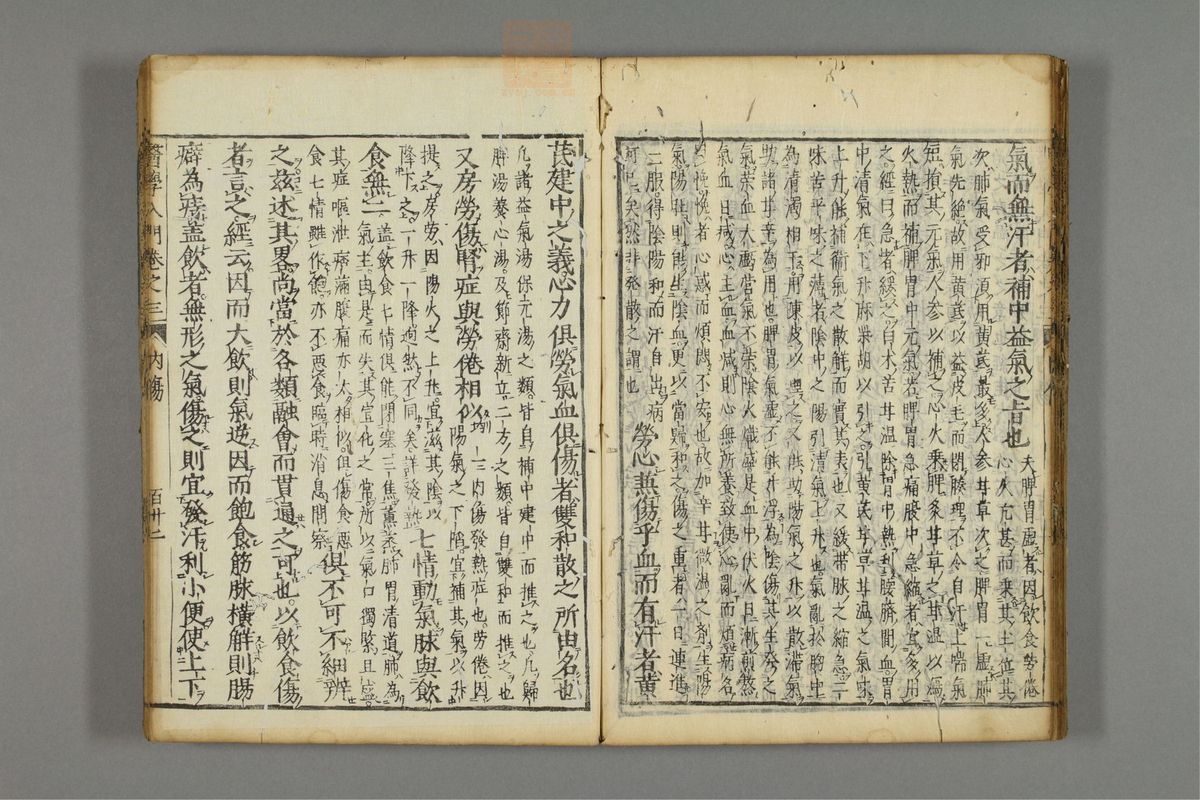 氣而無汗者補中益氣之旨也夫脾胃虛者因飲食勞倦心火亢甚而乘其土位其
次肺氣受邪須用黃芪最多人參甘草次之脾胃一虛肺
氣先絕故用黃芪以益皮毛而閉腠理不令自汗上喘氣
短損其元氣人參以補之心火乘脾炙甘草之甘溫以瀉
火熱而補脾胃中元氣若脾胃急痛腹中急縮者宜多用
之經曰急者緩之白木苦甘溫除胃中熱利腰臍間血胃
中清氣在下升麻柴胡以引之引黃芪甘草甘溫之氣味
上升能補衛氣之散解而實其表也又緩帶脉之縮急二
味苦平味之薄者陰中之陽引清氣上升也氣亂於胸中
為清濁相干用陳皮以理之又能助陽氣之升以散滯氣
助諸甘辛為用也脾胃氣虛不能升浮為陰火傷其生發之
氣榮血大虧榮氣不榮陰火熾盛是血中伏火日漸煎熬
氣血日減心主血血減則心無所養致使心亂而煩病名
曰悗悗者心惑而煩悶不安也故加辛甘微溫之劑生陽
氣陽旺則能生陰血更以當歸和之傷之重者一日連進
二服得陰陽和而汗自出病
可已矣然非發散之謂也勞心兼傷乎血而有汗者黃
芪建中之義心力俱勞氣血俱傷者雙和散之所由名也
凡諸益氣湯保元湯之類皆自補中建中而推之也凡歸
脾湯養心湯及節齋新立二方之類皆自雙和而推之也
又房勞傷腎症與勞倦相似均一內傷發熱症也勞倦因陽氣之下陷宜補其氣以升
提之房勞因陽火之上升宜滋其陰以
降下之一升一降迥然不同矣詳發熱七情動氣脉與飲
食無二蓋飲食七情俱能閉塞三焦薰蒸肺胃清道肺為氣主由是而失其宣化之常所以氣口獨緊且盛
其症嘔泄痞滿腹痛亦大相似但傷食惡
食七情雖作飽亦不惡食臨時消息間察俱不可不細辨
之茲述其畧尚當於各類融會而貫通之可也以飲食傷
者言之經云因而大飲則氣逆因而飽食筋脉橫解則腸
癖為痔蓋飲者無形之氣傷之則宜發汗利小便使上下
醫學入門卷之三　內傷　百卅二